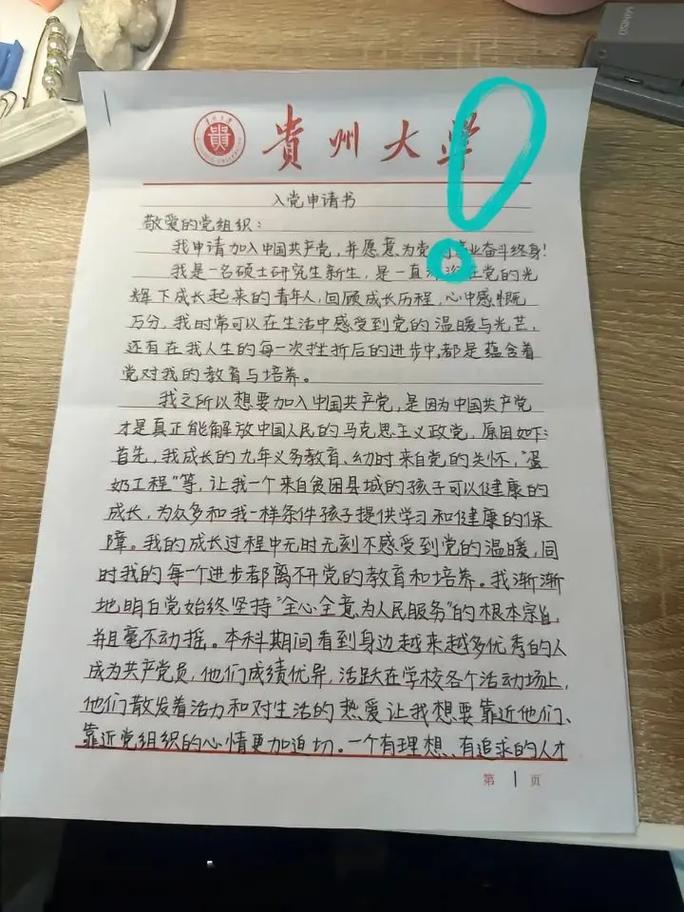 MINISO
貴州大学
入党申请书
敬爱的党组织：
我申请加入中国共产党，并愿意为党 事业奋斗终身！
我是一名硕士研究生新生，是一直 在党的光
辉下成长起来的青年人，回顾成长历程，心中感慨
万分，我时常可以在生活中感受到党的温暖与光芒，
还有在我人生的每一次挫折后的进步中，都是蕴含着
党对我的教育与培养。
我之所以想要加入中国共产党，是因为中国共产党
才是真正能解放中国人民的马克思主义政党，原因如下：
首先，我成长的九年义务教育、幼时来自党的关怀，“蛋
奶工程”等，让我一个来自贫困县城的孩子可以健康的
成长，为众多和我一样条件孩子提供学习和健康的保
障。我的成长过程中无时无刻不感受到党的温暖，同
时我的每一个进步都离不开党的教育和培养。我渐渐
地明白党始终坚持“全心全意为人民服务”的根本宗旨，
并且毫不动摇。本科期间看到身边越来越多优秀的人
成为共产党员，他们成绩优异，活跃在学校各个活动场上，
他们散发着活力和对生活的热爱让我想要靠近他们、
靠近党组织的心情更加迫切。一个有理想、有追求的人才
第 1 页